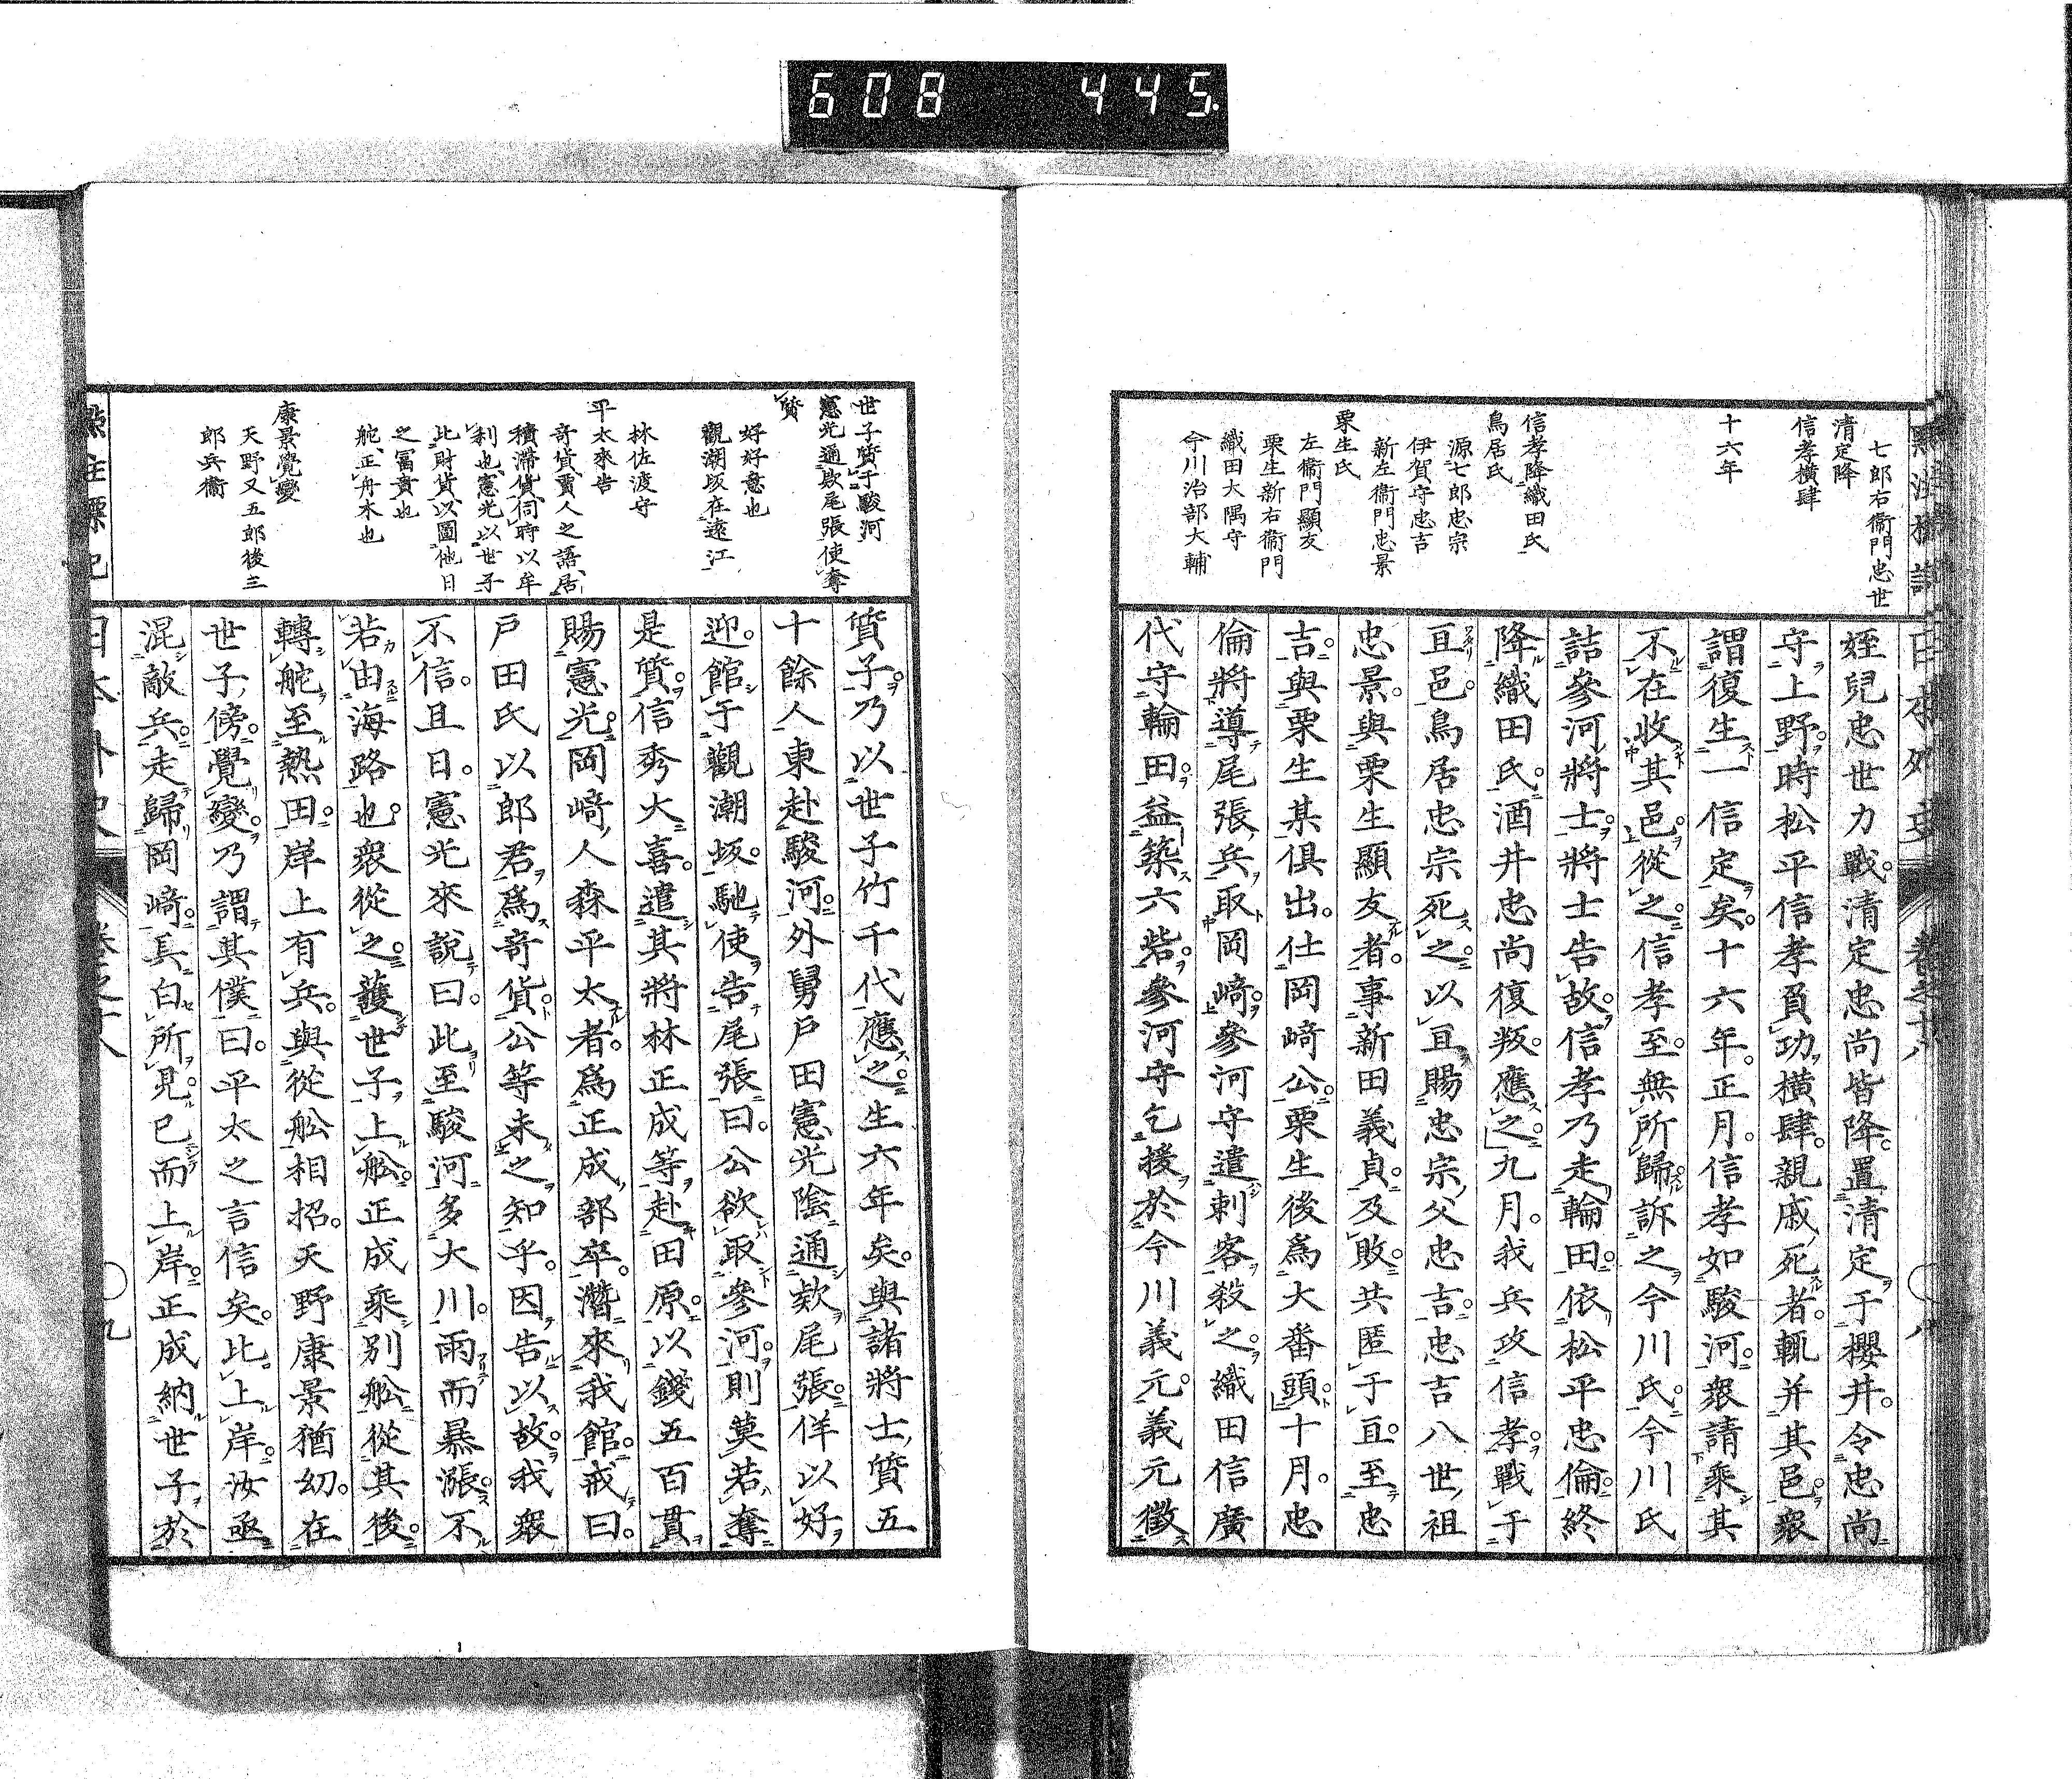 608 445
七郎右衞門忠世
清定降
信孝橫肆
十六年
信孝降織田氏
鳥居氏
源七郎忠宗
伊賀守忠吉
新左衞門忠景
栗生氏
左衞門顯友
栗生新右衞門
織田大隅守
今川治部大輔
姪兒忠世力戰。清定忠尚皆降。置清定于櫻井。令忠尚
守上野。時松平信孝負功橫肆。親戚死者。輒并其邑。衆
謂復生一信定矣。十六年。正月。信孝如駿河。衆請乘其
不在收其邑。從之。信孝至。無所歸。訴之今川氏。今川氏
詰參河將士。將士告故。信孝乃走輪田。依松平忠倫。終
降織田氏。酒井忠尚復叛。應之。九月。我兵攻信孝。戰于
亘邑。鳥居忠宗死之。以亘賜忠宗父忠吉。忠吉八世祖
忠景。與栗生顯友者。事新田義貞。及敗。共匿于亘。至忠
吉。與栗生某俱出。仕岡﨑公。栗生後爲大番頭。十月。忠
倫將導尾張兵取岡﨑。參河守遣刺客殺之。織田信廣
代守輪田。益築六砦。參河守乞援於今川義元。義元徵
世子質于駿河
憲光通款尾張使奪
質
好好意也
觀潮坂在遠江
林佐渡守
平太來告
奇貨、賈人之語、居
積滯貨、伺時以牟
利也、憲光以世子
比財貨、以圖他日
之冨貴也
舵、正舟木也
康景覺變
天野又五郎後三
郎兵衞
質子。乃以世子竹千代應之。生六年矣。與諸將士質五
十餘人東赴駿河。外舅戸田憲光陰通款尾張。佯以好
迎。館于觀潮坂。馳使告尾張曰。公欲取參河。則莫若奪
是質。信秀大喜。遣其將林正成等。赴田原。以錢五百貫
賜憲光。岡﨑人森平太者。爲正成部卒。潛來我館。戒曰。
戸田氏以郎君爲奇貨。公等未之知乎。因告以故。我衆
不信。且日。憲光來說曰。此至駿河多大川。雨而暴漲。不
若由海路也。衆從之。護世子上舩。正成乘別舩從其後。
轉舵至熱田。岸上有兵。與從舩相招。天野康景猶幼。在
世子傍。覺變。乃謂其僕曰。平太之言信矣。比上岸。汝亟
混敵兵。走歸岡﨑。具白所見。已而上岸。正成納世子於
日本外史
卷之十八
九